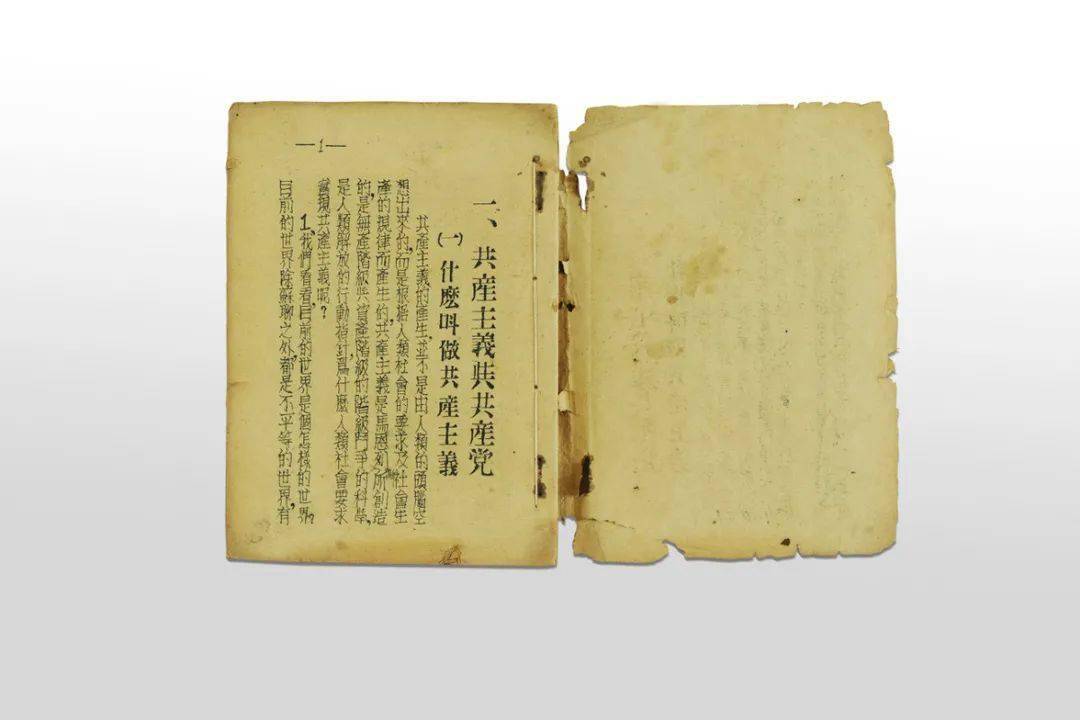 —1—
一、共産主義與共産党
(一)什麽叫做共產主義
共產主義的產生,並不是由人類的頭腦空
想出來的,而是根据人類社會的要求及社會生
產的規律而產生的,共產主義是馬恩列斯所創造
的,是無產階級與資產階級的階級鬥爭的科學,
是人類解放的行動指針,爲什麽人類社會要求
實現共產主義呢?
1、我們看看,目前的世界是個怎樣的世界?
目前的世界除蘇聯之外,都是不平等的世界,有